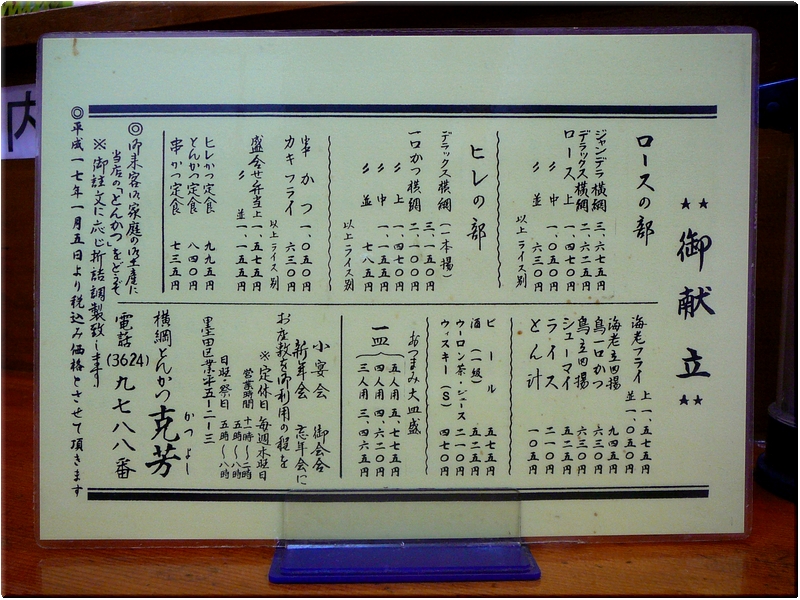 内
★★御献立★★
ロースの部
ジャンデラ横綱 三、六七五円
デラックス横綱 二、六二五円
ロース上 一、四七〇円
〃中 一、〇五〇円
〃並 六三〇円
以上ライス別
ヒレの部
デラックス横綱(一本揚) 三、一五〇円
一口かつ横綱 二、一〇〇円
〃上 一、四七〇円
〃中 一、一五五円
〃並 七八五円
以上ライス別
串かつ 一、〇五〇円
カキフライ 六三〇円
以上ライス別
盛合せ弁当上 一、五七五円
〃並 一、一五五円
ヒレかつ定食 九九五円
とんかつ定食 八四〇円
串かつ定食 七三五円
海老フライ 上 一、五七五円
並 一、〇五〇円
海老立田揚 九四五円
鳥一口かつ 六三〇円
鳥立田揚 六三〇円
シューマイ 五二五円
ライス 二一〇円
とん汁 一〇五円
ビール 五七五円
酒(一級) 五二五円
ウーロン茶・ジュース 二一〇円
ウィスキー(S) 四七〇円
おつまみ大皿盛
一皿
五人用 五、七七五円
四人用 四、六二〇円
三人用 三、四六五円
小宴会 御会合
新年会 忘年会に
お座敷を御利用の程を
※定休日 毎週水曜日
営業時間 十一時〜二時
五時〜八時
日曜・祭日 五時〜八時
墨田区業平五ー二ー三
かつよし
横綱とんかつ克芳
電話(3624)九七八八番
◎御来客に御家庭の御土産に
当店の「とんかつ」をどうぞ
※御註文に応じ折詰調製致します
◎平成一七年一月五日より税込み価格とさせて頂きます